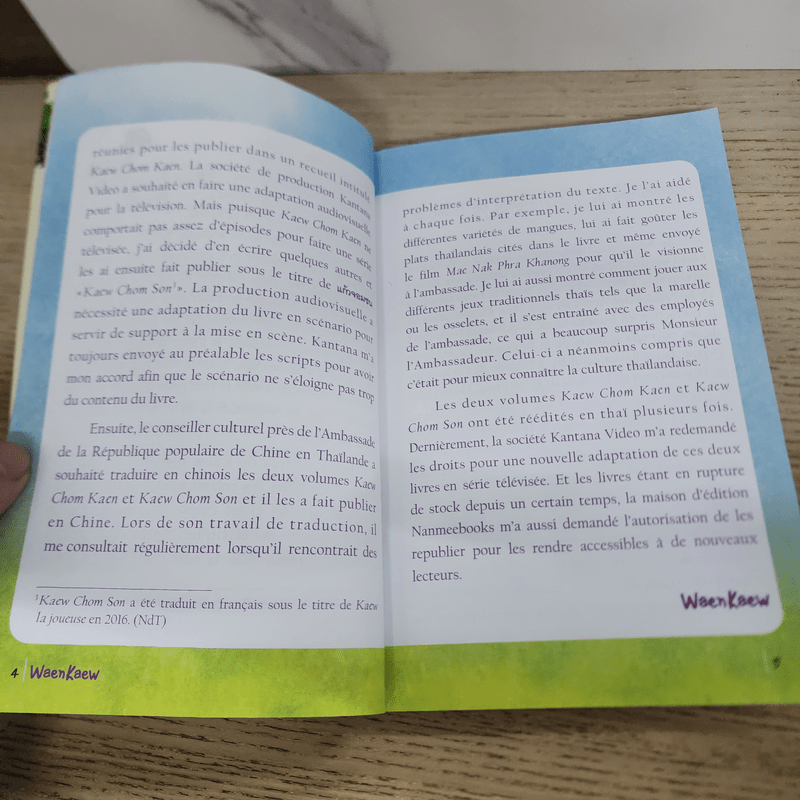 réunies pour les publier dans un recueil intitulé
Kaew Chom Kaen. La société de production Kantana
Video a souhaité en faire une adaptation audiovisuelle
pour la télévision. Mais puisque Kaew Chom Kaen ne
comportait pas assez d'épisodes pour faire une série
télévisée, j'ai décidé d'en écrire quelques autres et
les ai ensuite fait publier sous le titre de แก้วจอมซน
«Kaew Chom Son¹». La production audiovisuelle a
nécessité une adaptation du livre en scénario pour
servir de support à la mise en scène. Kantana m'a
toujours envoyé au préalable les scripts pour avoir
mon accord afin que le scénario ne s'éloigne pas trop
du contenu du livre.
Ensuite, le conseiller culturel près de l'Ambassade
de la République populaire de Chine en Thaïlande a
souhaité traduire en chinois les deux volumes Kaew
Chom Kaen et Kaew Chom Son et il les a fait publier
en Chine. Lors de son travail de traduction, il
me consultait régulièrement lorsqu'il rencontrait des
¹Kaew Chom Son a été traduit en français sous le titre de Kaew
la joueuse en 2016. (NdT)
4 | WaenKaew
problèmes d'interprétation du texte. Je l'ai aidé
à chaque fois. Par exemple, je lui ai montré les
différentes variétés de mangues, lui ai fait goûter les
plats thaïlandais cités dans le livre et même envoyé
le film Mae Nak Phra Khanong pour qu'il le visionne
à l'ambassade. Je lui ai aussi montré comment jouer aux
différents jeux traditionnels thaïs tels que la marelle
ou les osselets, et il s'est entraîné avec des employés
de l'ambassade, ce qui a beaucoup surpris Monsieur
l'Ambassadeur. Celui-ci a néanmoins compris que
c'était pour mieux connaître la culture thaïlandaise.
Les deux volumes Kaew Chom Kaen et Kaew
Chom Son ont été réédités en thaï plusieurs fois.
Dernièrement, la société Kantana Video m'a redemandé
les droits pour une nouvelle adaptation de ces deux
livres en série télévisée. Et les livres étant en rupture
de stock depuis un certain temps, la maison d'édition
Nanmeebooks m'a aussi demandé l'autorisation de les
republier pour les rendre accessibles à de nouveaux
lecteurs.
WaenKaew